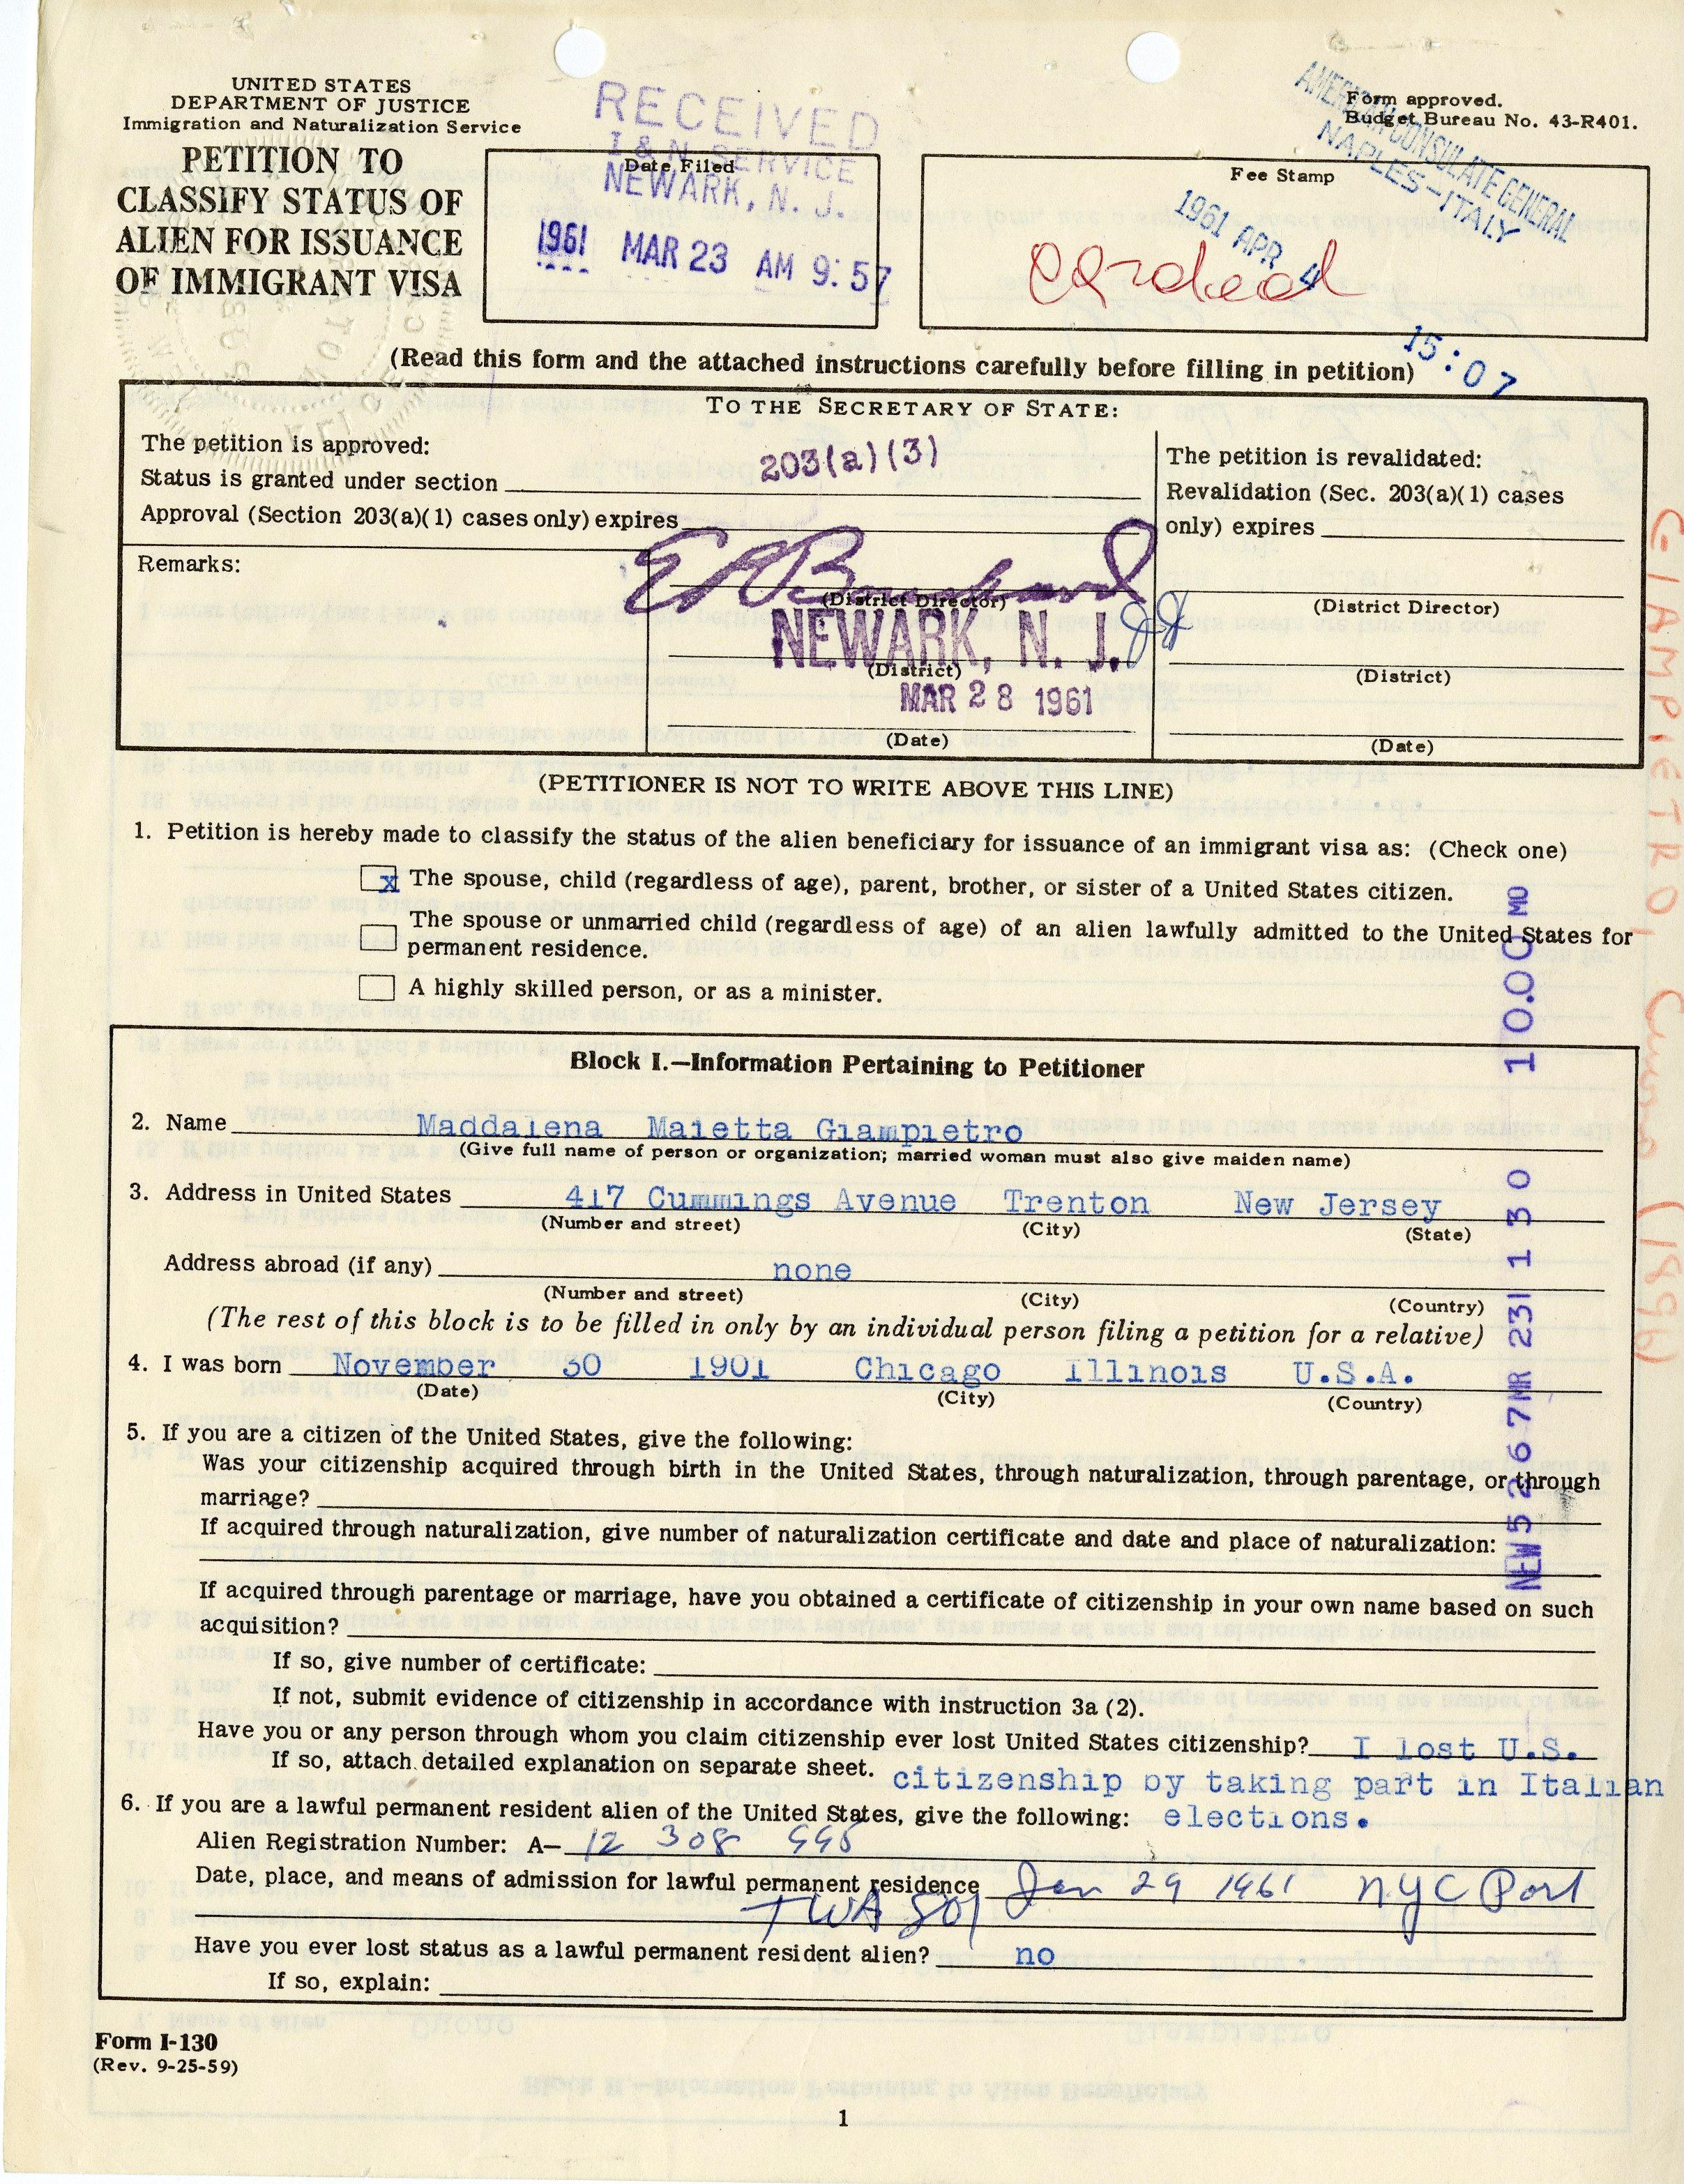 UNITED STATES
DEPARTMENT OF JUSTICE
Immigration and Naturalization Service
PETITION TO
CLASSIFY STATUS OF
ALIEN FOR ISSUANCE
OF IMMIGRANT VISA
RECEIVED
I & N SERVICE
NEWARK, N. J.
Date Filed
1961 MAR 23 AM 9:57
Form approved.
Budget Bureau No. 43-R401.
AMERICAN CONSULATE GENERAL
NAPLES-ITALY
Fee Stamp
1961 APR 4
15:07
(Read this form and the attached instructions carefully before filling in petition)
TO THE SECRETARY OF STATE:
The petition is approved:
Status is granted under section 203(a)(3)
Approval (Section 203(a)(1) cases only) expires
The petition is revalidated:
Revalidation (Sec. 203(a)(1) cases
only) expires
Remarks:
(District Director)
NEWARK, N. J.
(District)
MAR 28 1961
(Date)
(District Director)
(District)
(Date)
(PETITIONER IS NOT TO WRITE ABOVE THIS LINE)
1. Petition is hereby made to classify the status of the alien beneficiary for issuance of an immigrant visa as: (Check one)
x The spouse, child (regardless of age), parent, brother, or sister of a United States citizen.
The spouse or unmarried child (regardless of age) of an alien lawfully admitted to the United States for
permanent residence.
A highly skilled person, or as a minister.
Block I.—Information Pertaining to Petitioner
2. Name Maddalena Maietta Giampietro
(Give full name of person or organization; married woman must also give maiden name)
3. Address in United States 417 Cummings Avenue Trenton New Jersey
(Number and street) (City) (State)
Address abroad (if any) none
(Number and street) (City) (Country)
(The rest of this block is to be filled in only by an individual person filing a petition for a relative)
4. I was born November 30 1901 Chicago Illinois U.S.A.
(Date) (City) (Country)
5. If you are a citizen of the United States, give the following:
Was your citizenship acquired through birth in the United States, through naturalization, through parentage, or through
marriage?
If acquired through naturalization, give number of naturalization certificate and date and place of naturalization:
If acquired through parentage or marriage, have you obtained a certificate of citizenship in your own name based on such
acquisition?
If so, give number of certificate:
If not, submit evidence of citizenship in accordance with instruction 3a (2).
Have you or any person through whom you claim citizenship ever lost United States citizenship? I lost U.S.
If so, attach detailed explanation on separate sheet. citizenship by taking part in Italian
6. If you are a lawful permanent resident alien of the United States, give the following: elections.
Alien Registration Number: A— 12 308 995
Date, place, and means of admission for lawful permanent residence Jan 29 1961 NYC Port
TWA 801
Have you ever lost status as a lawful permanent resident alien? no
If so, explain:
Form I-130
(Rev. 9-25-59)
1
NEW 5267 MR 231 130 10.00 MO
GIAMPIETRO,